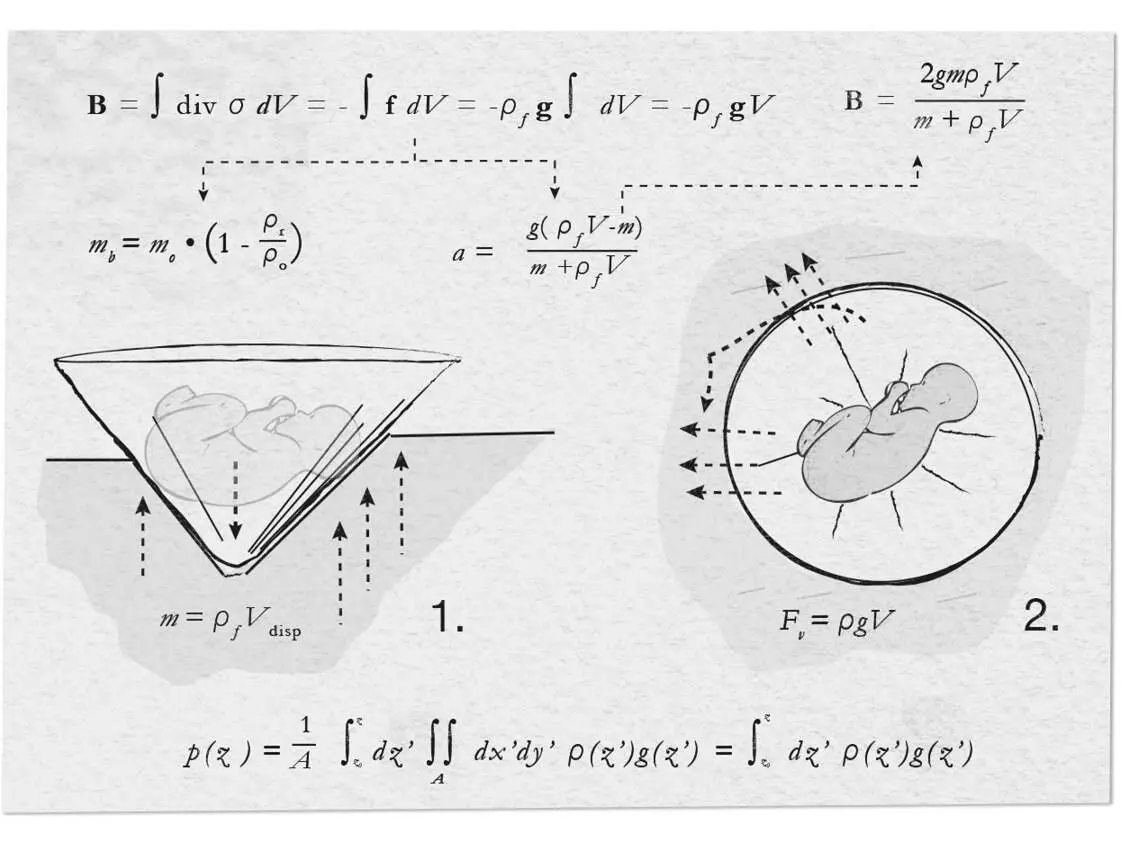 B = ∫ div σ dV = - ∫ f dV = -ρ_f g ∫ dV = -ρ_f gV
B = 2gmρ_f V / m + ρ_f V
m_b = m_o • (1 - ρ_f / ρ_o)
a = g( ρ_f V-m) / m +ρ_f V
m = ρ_f V_disp
1.
F_v = ρgV
2.
p(z ) = 1/A ∫_z₀^z dz’ ∬_A dx’dy’ ρ(z’)g(z’) = ∫_z₀^z dz’ ρ(z’)g(z’)